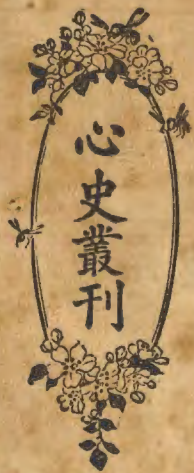 心史叢刊